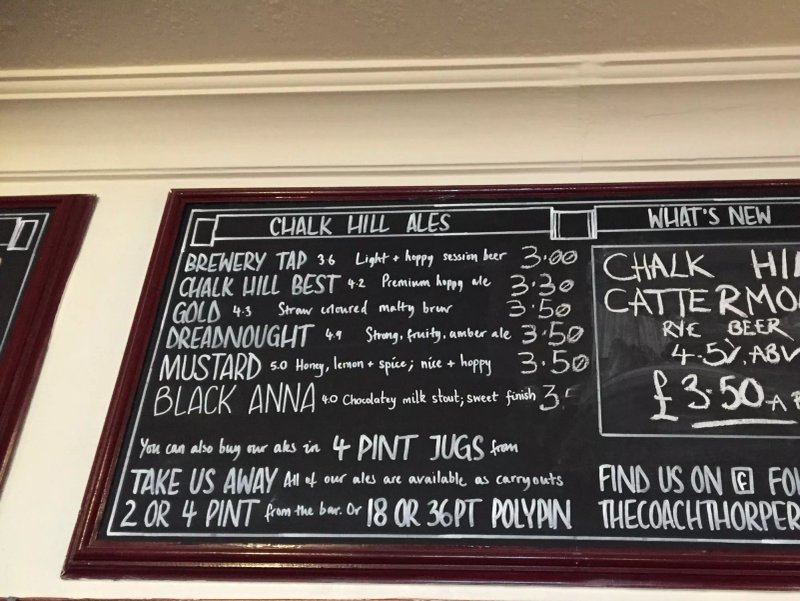 CHALK HILL ALES
BREWERY TAP 3.6 Light + hoppy session beer 3.00
CHALK HILL BEST 4.2 Premium hoppy ale 3.30
GOLD 4.3 Straw coloured malty brew 3.50
DREADNOUGHT 4.9 Strong, fruity, amber ale 3.50
MUSTARD 5.0 Honey, lemon + spice; nice + hoppy 3.50
BLACK ANNA 4.0 Chocolatey milk stout; sweet finish 3.5
You can also buy our ales in 4 PINT JUGS from
TAKE US AWAY All of our ales are available as carryouts
2 OR 4 PINT from the bar. Or 18 OR 36PT POLYPIN
WHAT'S NEW
CHALK HI
CATTERMO
RYE BEER
4.5% ABV
£3.50 A P
FIND US ON f FO
THECOACHTHORPER